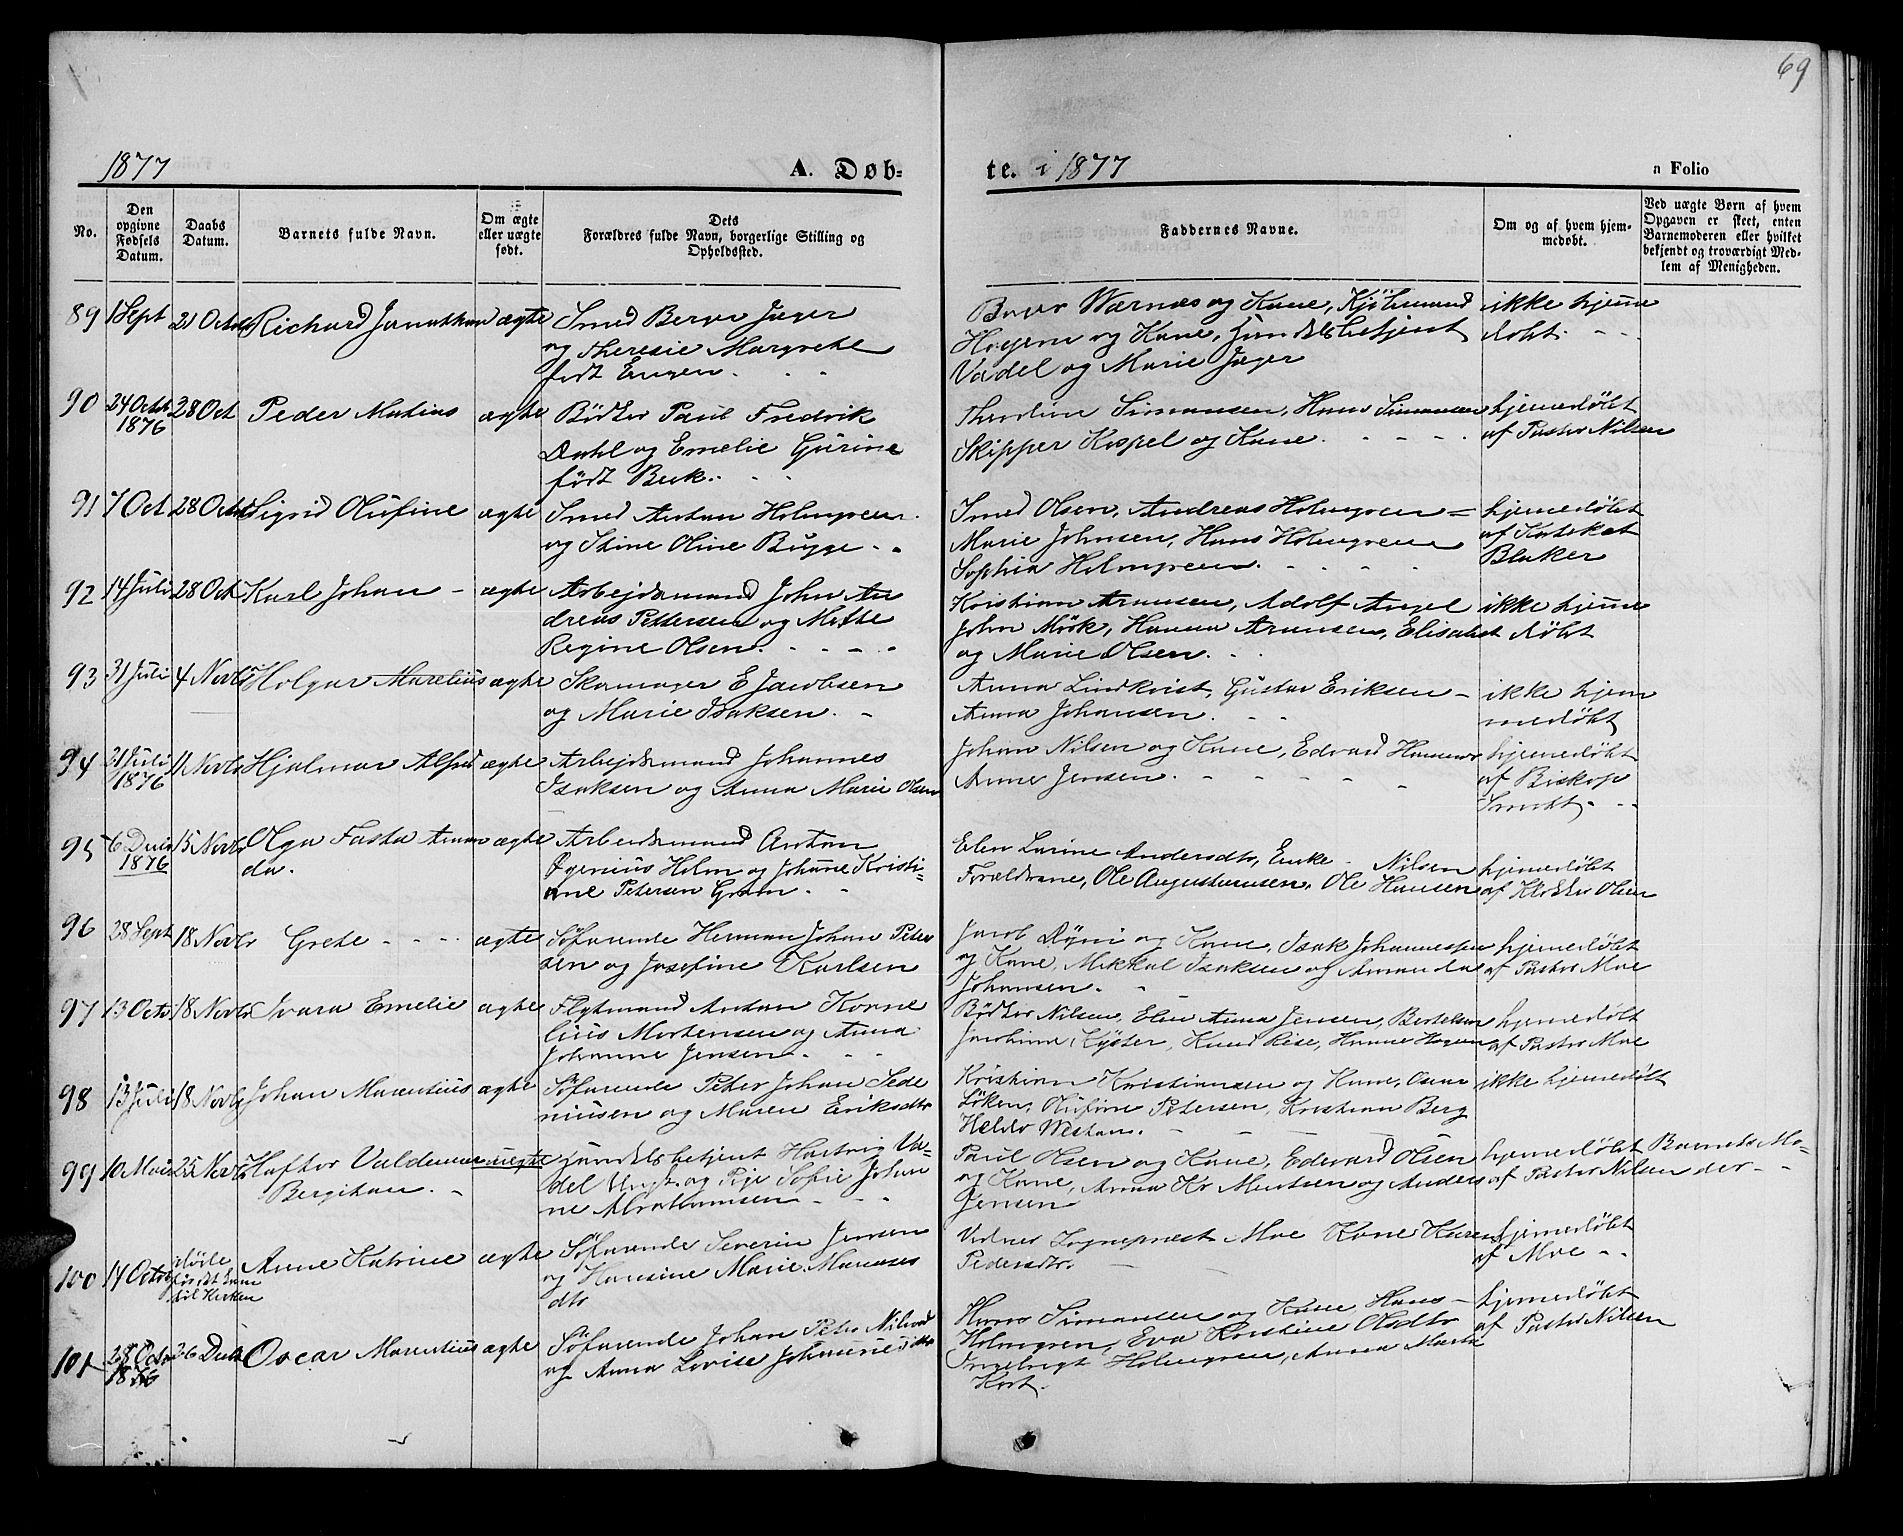 69
1877
A. Døb-
te. i 1877
Folio
No.
Den opgivne Fødsels Datum.
Daabs Datum.
Barnets fulde Navn.
Om ægte eller uægte født.
Dets Forældres fulde Navn, borgerlige Stilling og Opholdssted.
Faddernes Navne.
Om og af hvem hjemmedøbt.
Ved uægte Børn af hvem Opgaven er skeet, enten Barnemoderen eller hvilket bekjendt og troværdigt Medlem af Menigheden.
89 1 Sept 21 Octbr Richard Jonathan ægte Smed Berger Jæger
og Theresie Margrethe
født Engen.
Wærnes og Kone, Kjøbmand
og Kone, Handelsbetjent
Vadel og Marie Jæger
ikke hjeme
døbt.
90 24 Octbr 1876 28 Oct Peder Matius ægte Bødker Paul Fredrik
Dahl og Emelie Gurine
født Beck.
Simonsen, Hans Simonsen
Skipper Kospel og Kone.
hjemedøbt
af Pastor Nilsen
91 7 Oct 28 Octb Sigrid Olufine ægte Smed Anton Holmgreen
og Stine Oline Bugge
Smed Olsen, Andreas Holmgreen
Marie Johnsen, Hans Holmgreen
Sophia Holmgreen.
hjemedøbt
af Kateket
Blaker
92 14 Juli 28 Oct Karl Johan ægte Arbejdsmand John An
dreas Pettersen og Mette
Regine Olsen.
Kristian Arnesen, Adolf Angel
John Mörk, Hanna Arnesen, Elisabet
og Marie Olsen.
ikke hjeme
døbt
93 31 Juli 4 Novbr Holgar Marelius ægte Skomager E Jacobsen
og Marie Isaksen.
Anna Lindkvist, Gustav Eriksen
Anna Johansen.
ikke hjem
medøbt
94 21 Juli 1876 11 Novbr Hjalmar Alfred ægte Arbejdsmand Johannes
Isaksen og Anna Marie Olsen
Johan Nilsen og Kone, Edvard Hansen
Anne Jensen.
hjemedøbt
af Biskop
Smidt.
95 6 1876 15 Novbr Olga Fasta Aman
da.
ægte Arbeidsmand Anton
Holm og Johane Kristi-
ane Petersen Gram.
Elen Larine Andersdtr, Enke Nilsen
Forældrene, Ole Augustinusen, Ole Hansen
hjemedøbt
af Klokker Olsen
96 28 Sept 18 Novbr Grete ægte Søfarende Herman Johan Peter
sen og Josefine Karlsen
Jacob og Kone, Isak Johannesen
og Kone, Mikkal Isaksen og Amanda
Johansen.
hjemedøbt
af Pastor Moe
97 13 Octb 18 Novbr Svara Emelie ægte Flytmand Antan Korne
lius Mortensen og Anna
Johanne Jensen.
Bødker Nilsen, Elen Anna Jensen, Bertelsen
Jachima Kyster, Knud Rise, Hanne
hjemedøbt
af Pastor Moe
98 13 Juli 18 Novb Johan Marentius ægte Søfarende Peter Johan Sede
niusen og Maren Eriksdtr
Kristian Kristiansen og Kone,
Løken, Olufine Petersen, Kristian Berg
ikke hjemedøbt
99 10 25 Novb Haftor Valdemar
Bergithan.
uægte Handelsbetjent Hartvig Va-
del og Pige Sofie Johan
ne Abrahamsen
Paul Olsen og Kone, Edevard Olsen
og Kone, Anna Kr Mentsen og Anders
Jensen
hjemedøbt
af Pastor Nilsen
Barnets Mo-
der
100 14 Octbr døde
før det kom
til Kirken
Anne Katrine ægte Søfarende Severin Jensen
og Hansine Marie Manases
dtr
Sognepræst Moe Kone Karen
Pedersdtr.
hjemedøbt
af Moe
101 28 Octbr 1876 26 Oscar Marentius ægte Søfarende Johan Peter
og Anna Lovise Johannesdtr
Hans Simonsen og Kone Hans
Holmgren, Eva Kristine Olsdtr
Ingebrigt Holmgreen, Anna Marta
Kort.
hjemedøbt
af Pastor Nilsen